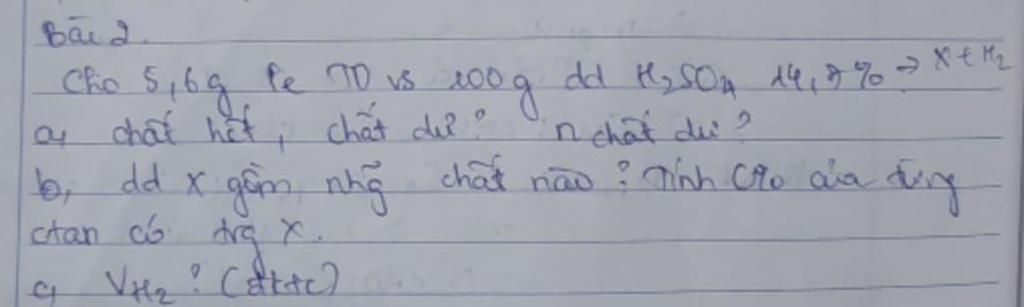 Bài 2.
Cho 5,6g Fe TD vs 200g dd H₂SO₄ 14,7% → X + H₂
a, chất hết, chất dư? n chất dư?
b, dd X gồm nhg̃ chất nào? Tính C% của từng
ctan có trg X.
c, VH₂? (đktc)